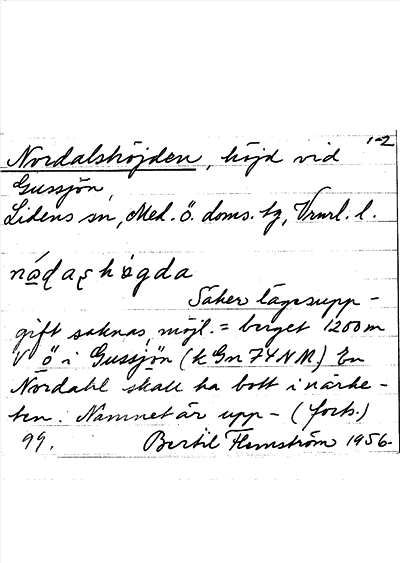 1-2
Nordalshöjden, höjd vid
Gussjön,
Lidens sn, Med. ö. doms. tg, Vrnrl. l.
Säker lägesupp-
gift saknas, möjl. = berget 1200 m
V ö i Gussjön (k Gn 74 NM) En
Nordahl skall ha bott i närhe-
ten. Namnet är upp- (forts.)
99. Bertil Flemström 1956.